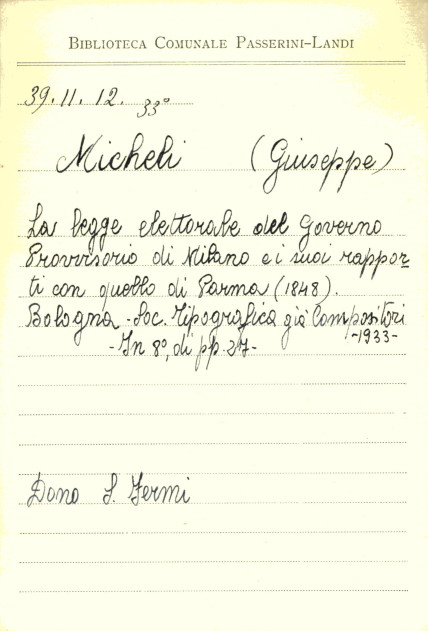 BIBLIOTECA COMUNALE PASSERINI-LANDI
39.II.12. 33°
Micheli (Giuseppe)
La legge elettorale del Governo
Provvisorio di Milano e i suoi rappor=
ti con quello di Parma (1848).
Bologna - Soc. Tipografica già Compositori
-1933-
- In 8°, di pp. 27 -
Dono S. Fermi